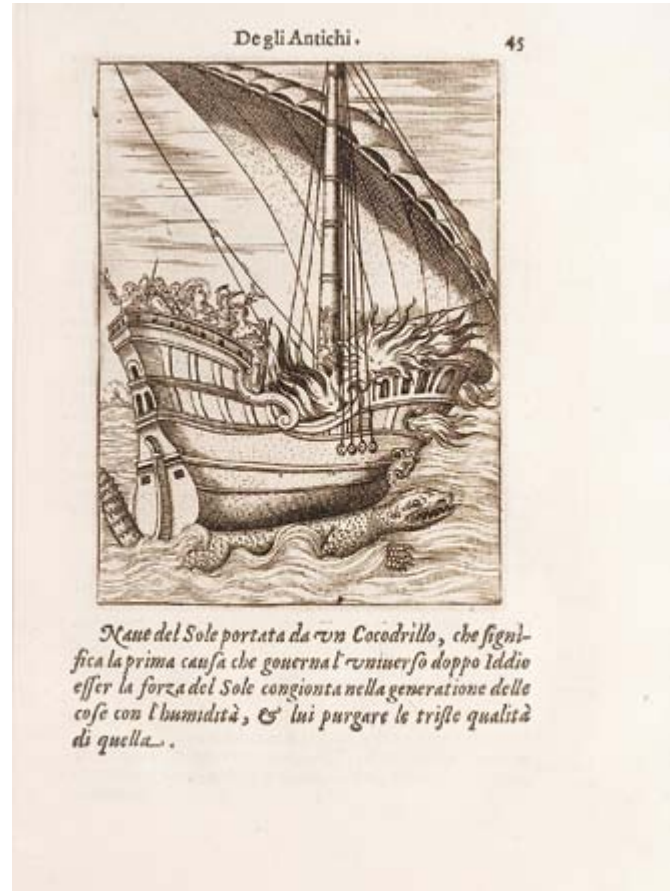 De gli Antichi.
45
Naue del Sole portata da vn Cocodrillo, che signi-
fica la prima causa che gouerna l'vniuerso doppo Iddio
esser la forza del Sole congionta nella generatione delle
cose con l'humidità, & lui purgare le triste qualità
di quella.